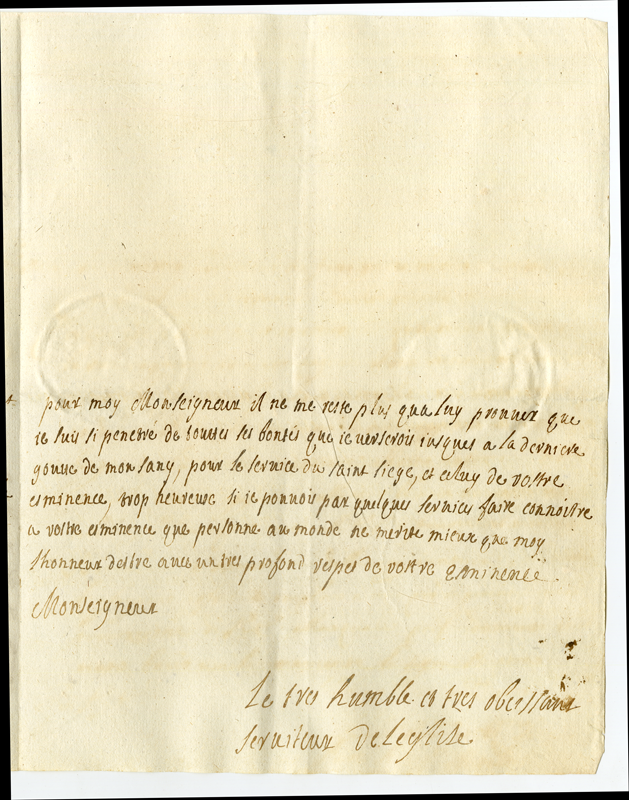 pour moy Monseigneur il ne me reste plus qua luy prouuer que
ie suis si penetré de touttes ses bontés que ie verserois iusques a la derniere
goutte de mon sang, pour le seruice du saint siege, et celuy de vostre
esminence, trop heureuse si ie pouuois par quelques seruices faire connoistre
a vostre esminence que personne au monde ne merite mieux que moy
lhonneur destre auec un tres profond respec de vostre eminence
Monseigneur
Le tres humble et tres obeissant
seruiteur Deleglise